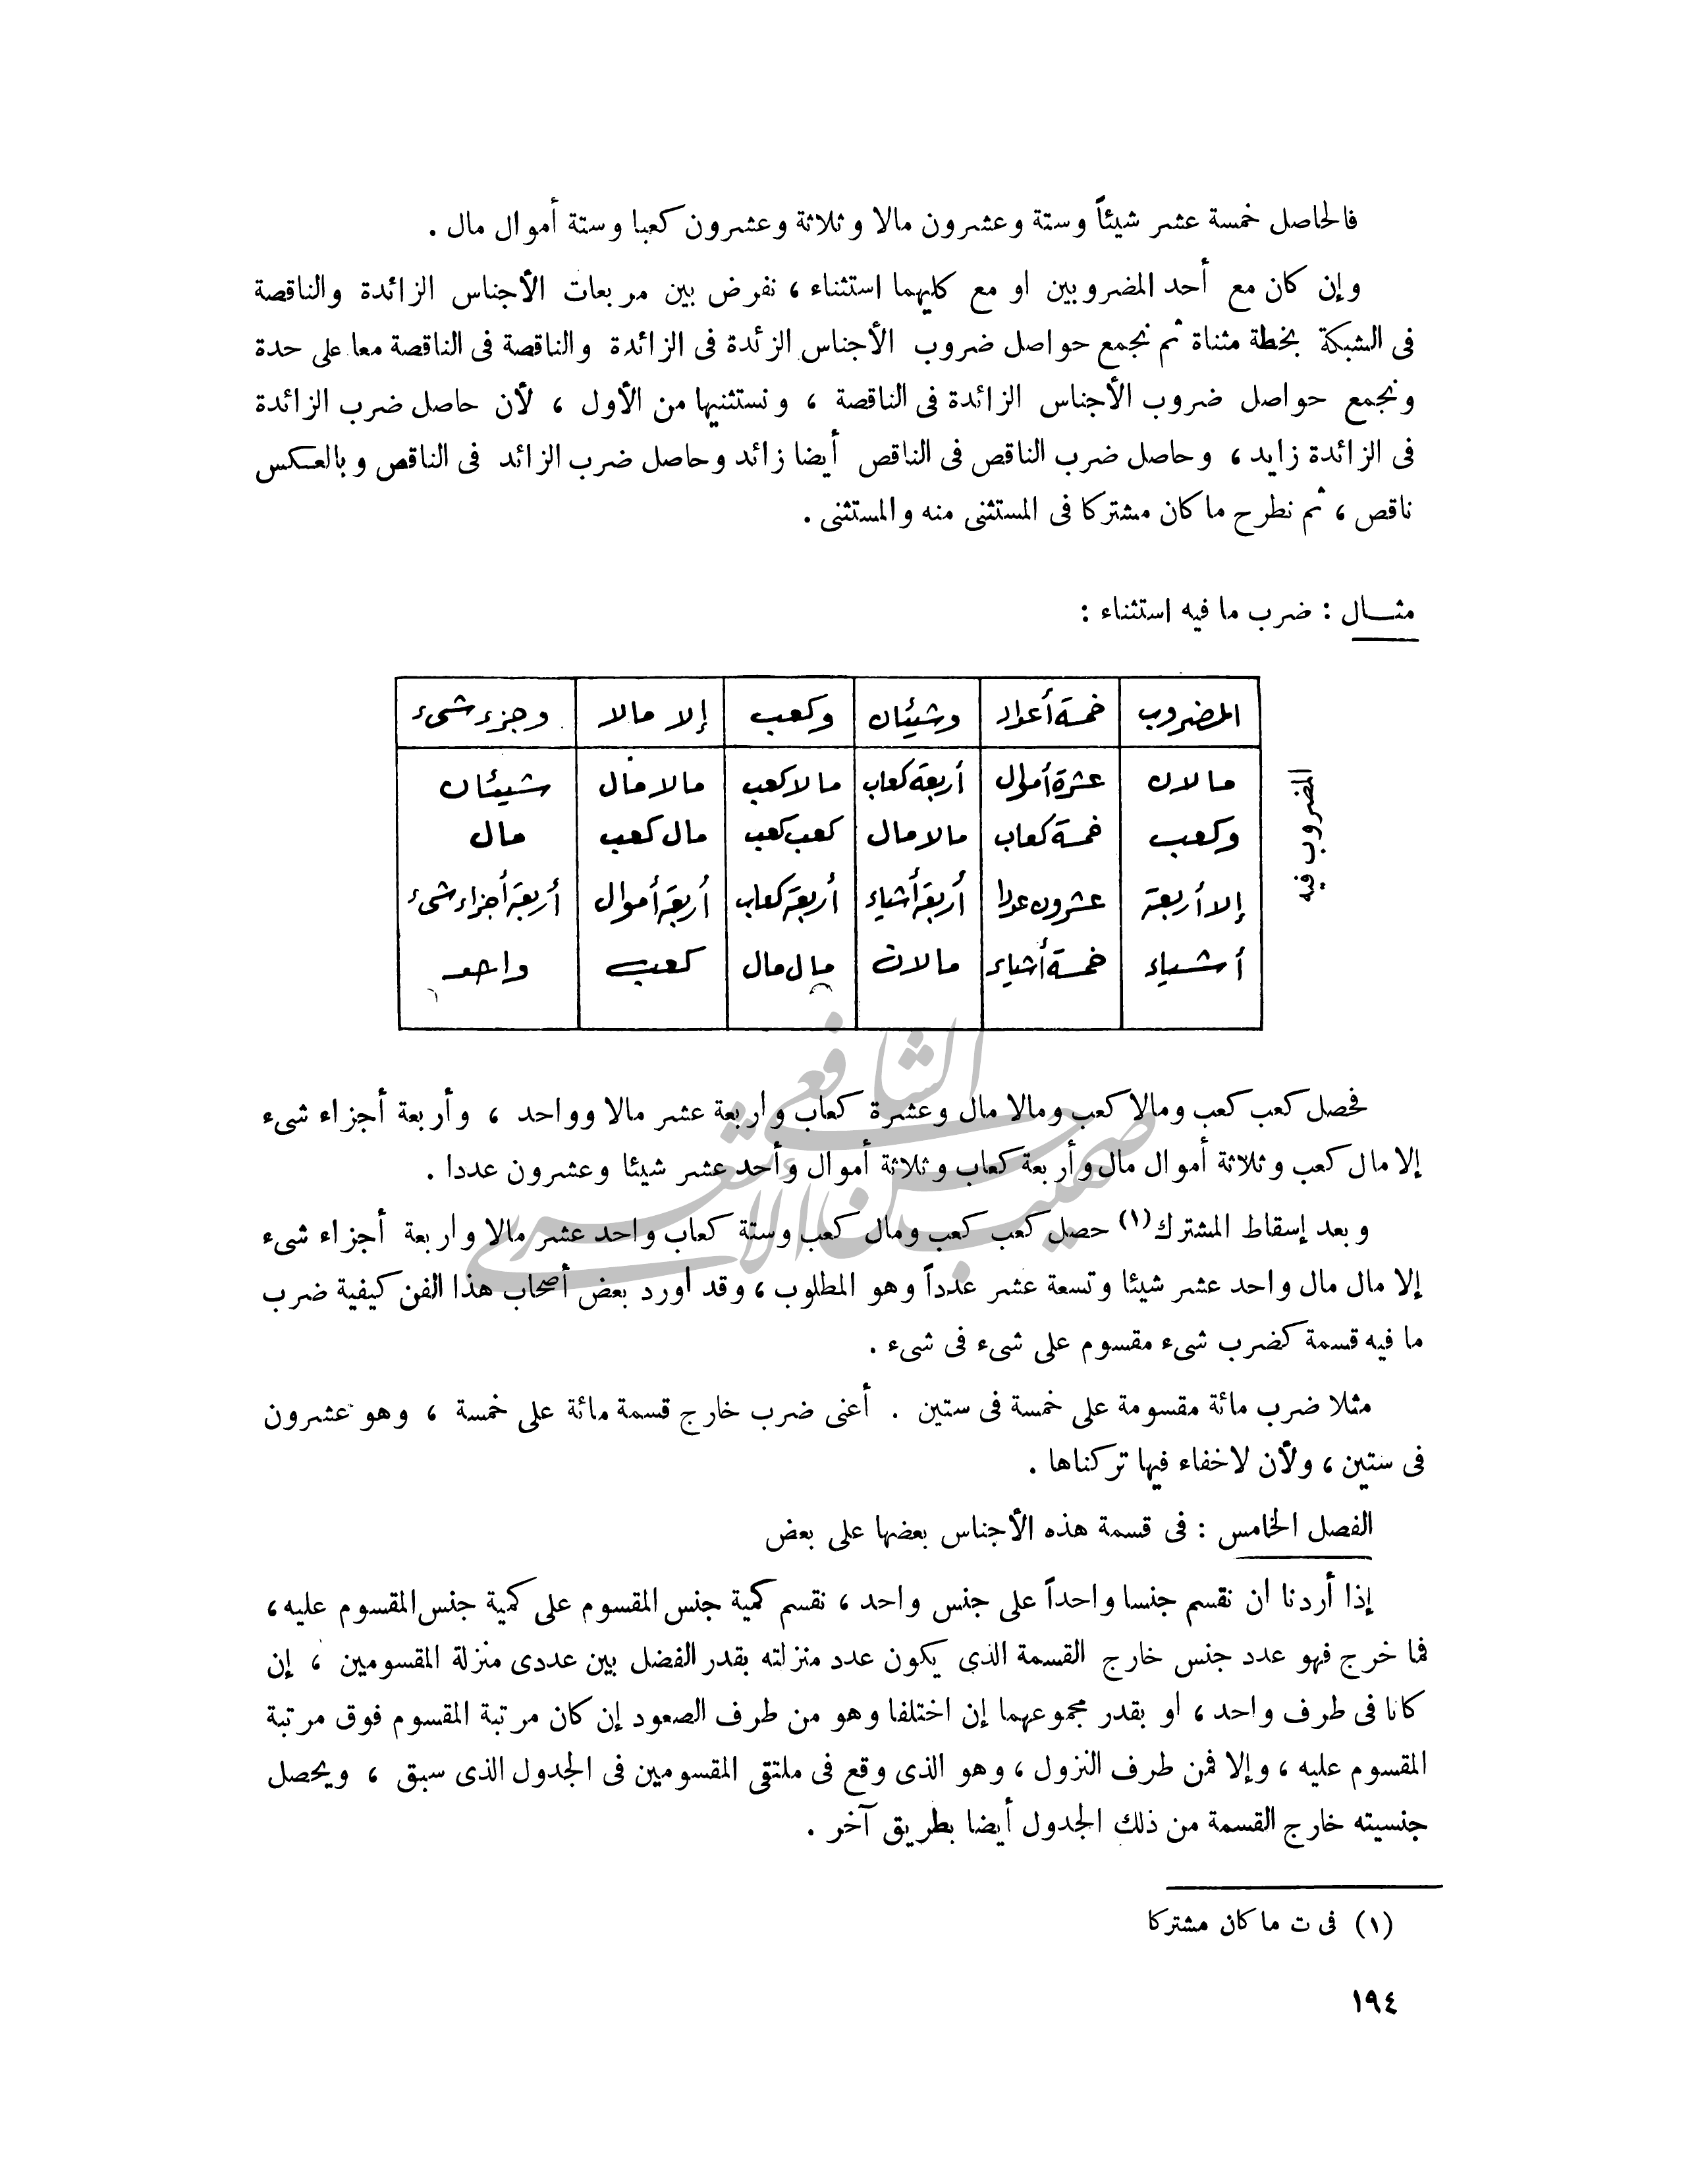 فالحاصل خمسة عشر شيئاً وستة وعشرون مالا وثلاثة وعشرون كعبا وستة أموال مال .
وإن كان مع أحد المضروبين او مع كليهما استثناء ، نفرض بين مربعات الأجناس الزائدة والناقصة
فى الشبكة بخطة مثناة ثم نجمع حواصل ضروب الأجناس الزئدة فى الزائدة والناقصة فى الناقصة معا على حدة
ونجمع حواصل ضروب الأجناس الزائدة فى الناقصة ، ونستثنيها من الأول ، لأن حاصل ضرب الزائدة
فى الزائدة زايد ، وحاصل ضرب الناقص فى الناقص أيضا زائد وحاصل ضرب الزائد فى الناقص وبالعكس
ناقص ، ثم نطرح ما كان مشتركا فى المستثنى منه والمستثنى .
مثـــال : ضرب ما فيه استثناء :
المضروب خمسة أعداد وشيئان وكعب إلا مالا وجزء شىء
المضروب فيه
مالان عشرة أموال أربعة كعاب مالا كعب مالا مال شيئان
وكعب خمسة كعاب مالا مال كعب كعب مال كعب مال
إلا أربعة عشرون عددا أربعة أشياء أربعة كعاب أربعة أموال أربعة أجزاء شىء
أشياء خمسة أشياء مالان مال مال كعب واحد
فحصل كعب كعب ومالا كعب ومالا مال وعشرة كعاب واربعة عشر مالا وواحد ، وأربعة أجزاء شىء
إلا مال كعب وثلاثة أموال مال وأربعة كعاب وثلاثة أموال وأحد عشر شيئا وعشرون عددا .
وبعد إسقاط المشترك (١) حصل كعب كعب ومال كعب وستة كعاب واحد عشر مالا واربعة أجزاء شىء
إلا مال مال واحد عشر شيئا وتسعة عشر عدداً وهو المطلوب ، وقد اورد بعض أصحاب هذا الفن كيفية ضرب
ما فيه قسمة كضرب شىء مقسوم على شىء فى شىء .
مثلا ضرب مائة مقسومة على خمسة فى ستين . أعنى ضرب خارج قسمة مائة على خمسة ، وهو عشرون
فى ستين ، ولأن لاخفاء فيها تركناها .
الفصل الخامس : فى قسمة هذه الأجناس بعضها على بعض
إذا أردنا ان نقسم جنسا واحداً على جنس واحد ، نقسم كمية جنس المقسوم على كمية جنس المقسوم عليه ،
فما خرج فهو عدد جنس خارج القسمة الذى يكون عدد منزلته بقدر الفضل بين عددى منزلة المقسومين ، إن
كانا فى طرف واحد ، او بقدر مجموعهما إن اختلفا وهو من طرف الصعود إن كان مرتبة المقسوم فوق مرتبة
المقسوم عليه ، وإلا فمن طرف النزول ، وهو الذى وقع فى ملتقى المقسومين فى الجدول الذى سبق ، ويحصل
جنسيته خارج القسمة من ذلك الجدول أيضا بطريق آخر .
(١) فى ت ما كان مشتركا
١٩٤